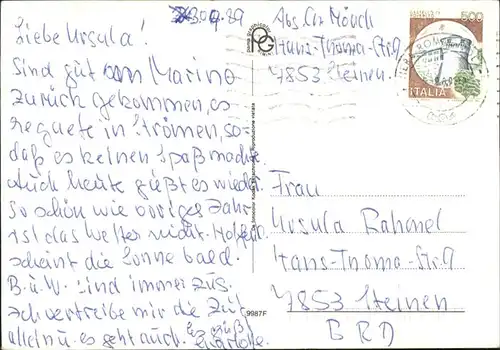 30.9.89
Liebe Ursula!
Sind gut von Marino
zurück gekommen, es
regnete in Strömen, so-
daß es keinen Spaß machte.
Auch heute gießt es wieder.
So schön wie voriges Jahr
ist das Wetter nicht. Hoffentl.
scheint die Sonne bald.
B. u. W. sind immer zus.
ich vertreibe mir die Zeit
allein u. es geht auch. Es grüßt
Abs. Mönch
Hans-Thoma-Str. 9
7853 Steinen.
500
ITALIA
ROMA
Frau
Ursula
Hans-Thoma-Str. 9
7853 Steinen
BRD
9987F
Riproduzione vietata